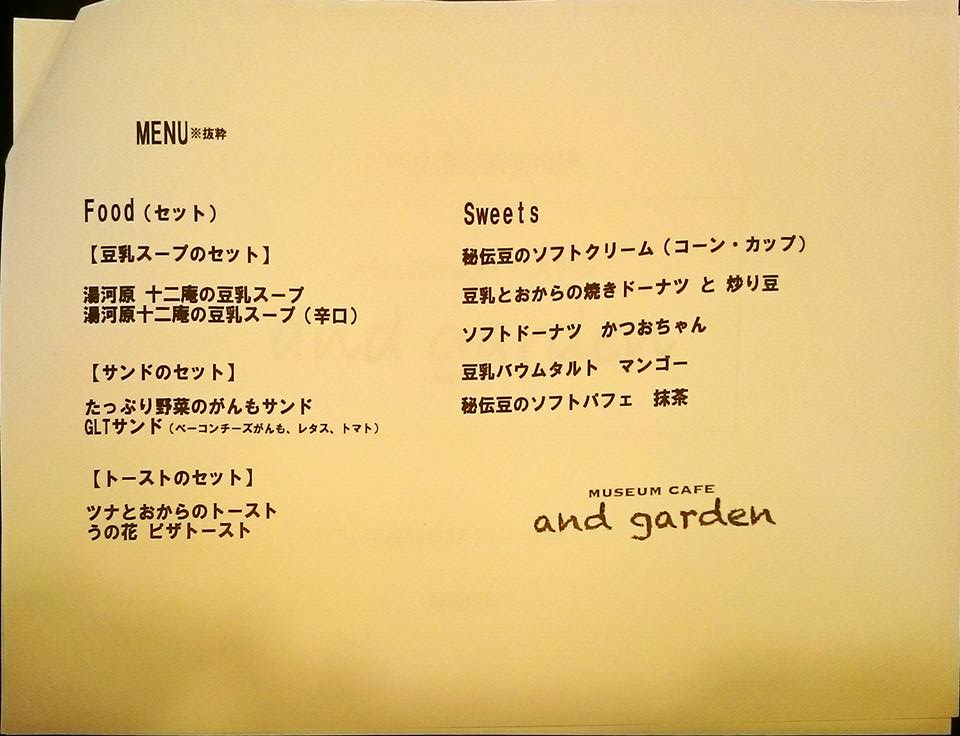 MENU※抜粋
Food(セット)
【豆乳スープのセット】
湯河原 十二庵の豆乳スープ
湯河原十二庵の豆乳スープ(辛口)
【サンドのセット】
たっぷり野菜のがんもサンド
GLTサンド(ベーコンチーズがんも、レタス、トマト)
【トーストのセット】
ツナとおからのトースト
うの花 ピザトースト
Sweets
秘伝豆のソフトクリーム(コーン・カップ)
豆乳とおからの焼きドーナツ と 炒り豆
ソフトドーナツ かつおちゃん
豆乳バウムタルト マンゴー
秘伝豆のソフトパフェ 抹茶
MUSEUM CAFE
and garden